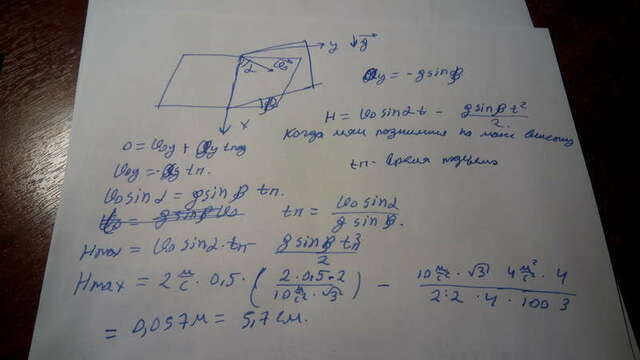 y ↓ g⃗
α v₀
β
x
ay = -g sinβ
H = v₀ sinα·t - g sinβ t²/2
Когда мяч поднимится на макс высоту
tп - время подъема
0 = v₀y + ay tпод
v₀y = -ay tп.
v₀ sinα = g sinβ tп.
tп = v₀ sinα / g sinβ.
Hmax = v₀ sinα·tп - g sinβ tп²/2
Hmax = 2 м/с · 0,5 · (2·0,5·2 / 10 м/с² · √3) - 10 м/с² · √3 4 м² · 4 / 2·2 · 4 · 100 3
= 0,057м = 5,7 см.